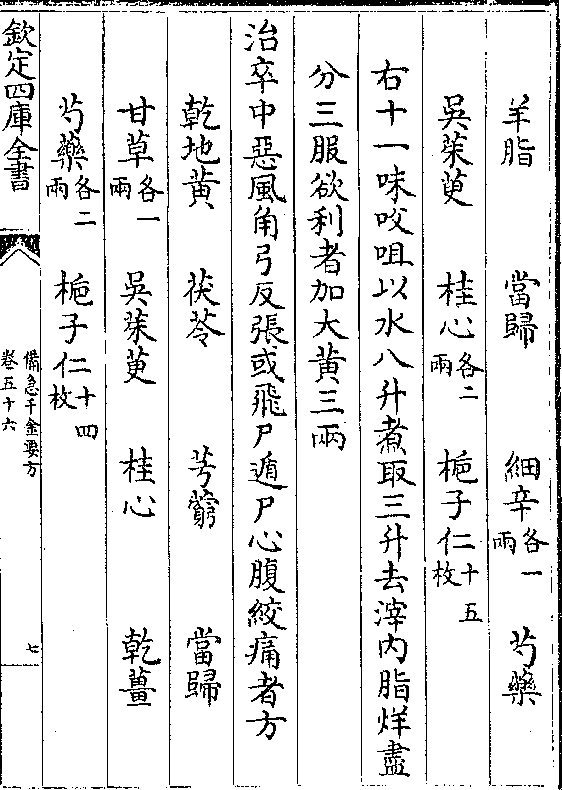 羊脂 當歸 細辛各一兩 芍藥
吳茱萸 桂心各二兩 梔子仁十五枚
右十一味㕮咀以水八升煮取三升去滓内脂烊盡
分三服欲利者加大黃三兩
治卒中惡風角弓反張或飛尸遁尸心腹絞痛者方
乾地黃 茯苓 芎藭 當歸
甘草各一兩 吳茱萸 桂心 乾薑
芍藥各二兩 梔子仁十四枚
欽定四庫全書
備急千金要方
卷五十六
七